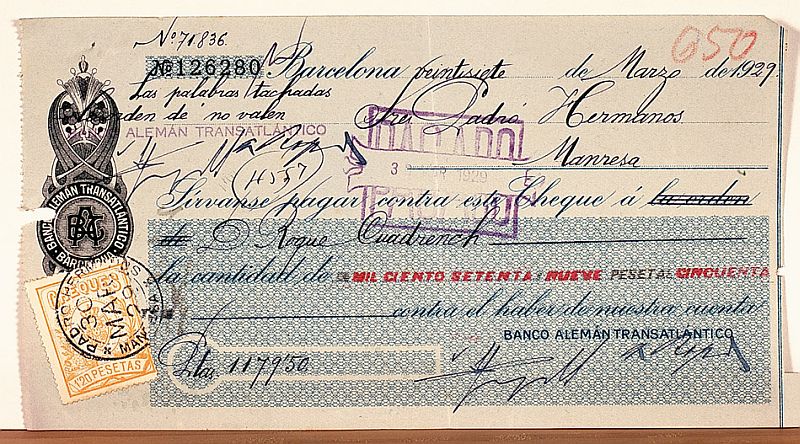 Nº 71.836.
650
Nº 126280 Barcelona veintisiete de Marzo de 1929.
las palabras tachadas
orden de no valen Sres Padró Hermanos
ALEMÁN TRANSATLÁNTICO
PAGADO
Manresa
1929
4557
Sirvanse pagar contra este Cheque á la orden
de D. Roque Cuadrench
la cantidad de MIL CIENTO SETENTA Y NUEVE PESETAS CINCUENTA
contra el haber de nuestra cuenta
BANCO ALEMÁN TRANSATLÁNTICO
Ptas. 1179'50
BANCO ALEMÁN TRANSATLANTICO BARCELONA
CHEQUES
PADRO
30 MAR 29
MAN
1'20 PESETAS